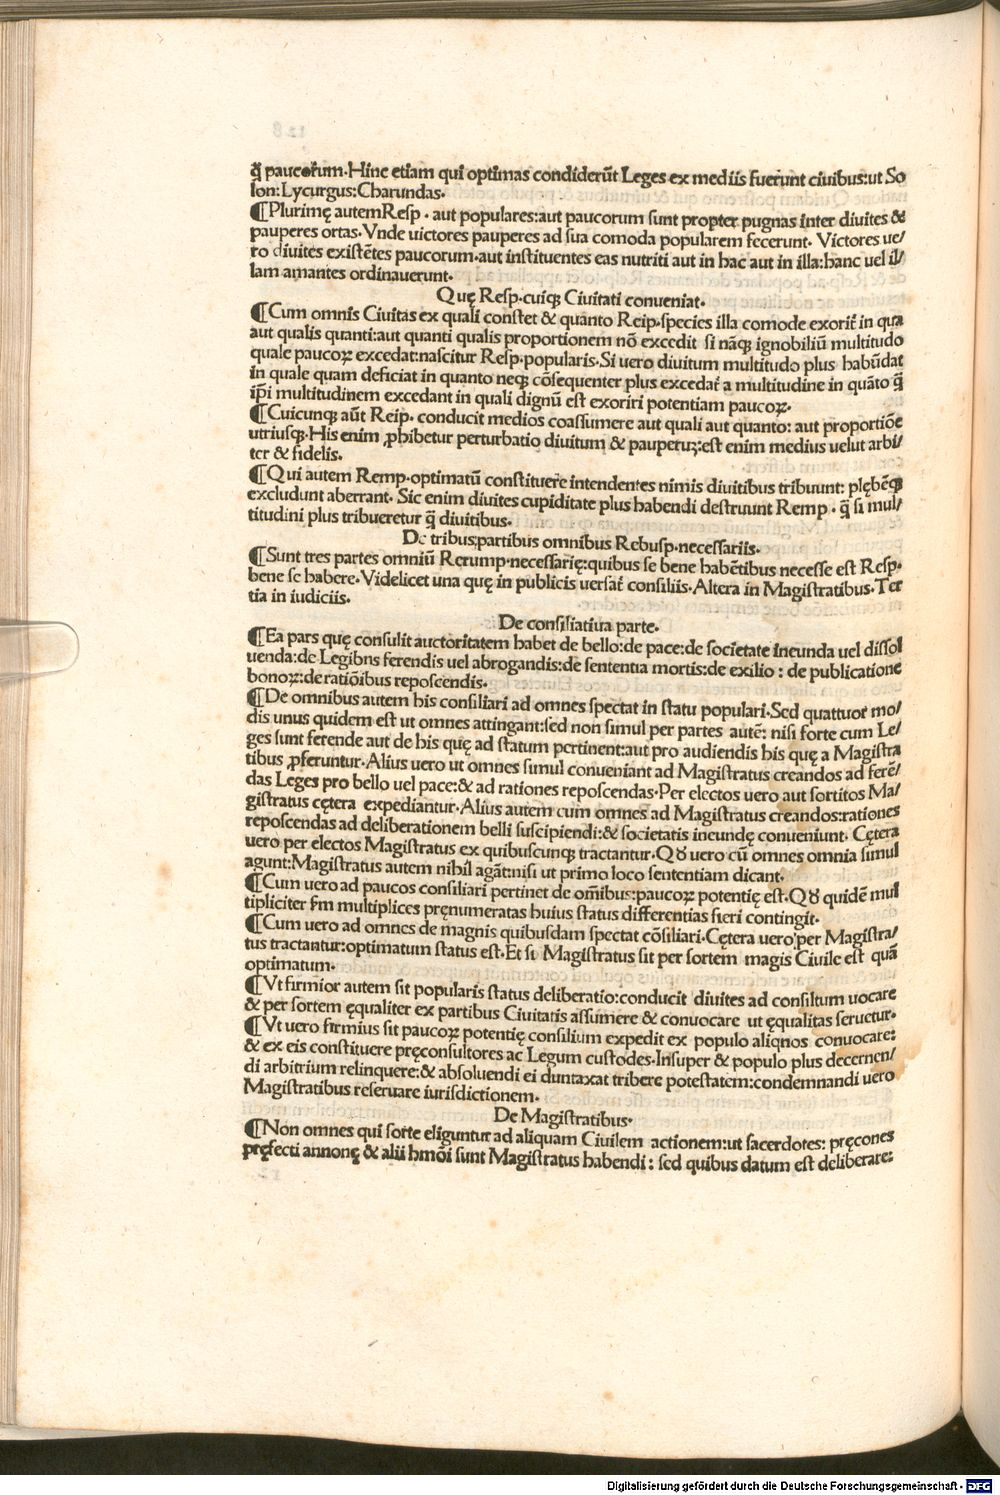 q̄ paucorum·Hinc etiam qui optimas condiderūt Leges ex mediis fuerunt ciuibus:ut So
lon:Lycurgus:Charundas·
¶Plurimę autemResp · aut populares:aut paucorum sunt propter pugnas inter diuites &
pauperes ortas·Vnde uictores pauperes ad sua comoda popularem fecerunt· Victores ue/
ro diuites existētes paucorum·aut instituentes eas nutriti aut in hac aut in illa:hanc uel il/
lam amantes ordinauerunt·
Quę Resp·cuiqꝫ Ciuitati conueniat·
¶Cum omnis Ciuitas ex quali constet & quanto Reip·species illa comode exorit̄ in qua
aut qualis quanti:aut quanti qualis proportionem nō excedit si nāqꝫ ignobiliū multitudo
quale paucoꝝ excedat:nascitur Resp·popularis·Si uero diuitum multitudo plus habūdat
in quale quam deficiat in quanto neqꝫ cōsequenter plus excedat̄ a multitudine in quāto q̄
ip̄i multitudinem excedant in quali dignū est exoriri potentiam paucoꝝ·
¶Cuicunqꝫ aūt Reip· conducit medios coassumere aut quali aut quanto: aut proportiōe
utriusqꝫ·His enim ꝓhibetur perturbatio diuitum & pauperuꝫ:est enim medius uelut arbi/
ter & fidelis·
¶Qui autem Remp·optimatū constituere intendentes nimis diuitibus tribuunt: plębēqꝫ
excludunt aberrant· Sic enim diuites cupiditate plus habendi destruunt Remp · q̄ si mul/
titudini plus tribueretur q̄ diuitibus·
De tribus;partibus omnibus Rebusp·necessariis·
¶Sunt tres partes omniū Rerump·necessarię:quibus se bene habētibus necesse est Resp·
bene se habere·Videlicet una quę in publicis uersat̄ consiliis·Altera in Magistratibus·Ter
tia in iudiciis·
De consisiatiua parte·
¶Ea pars quę consulit auctoritatem habet de bello:de pace:de societate ineunda uel dissol
uenda:de Legibns ferendis uel abrogandis:de sententia mortis:de exilio : de publicatione
bonoꝝ:de ratiōibus reposcendis·
¶De omnibus autem his consiliari ad omnes spectat in statu populari·Sed quattuor mo/
dis unus quidem est ut omnes attingant:sed non simul per partes autē: nisi forte cum Le/
ges sunt ferende aut de his quę ad statum pertinent:aut pro audiendis his quę a Magistra
tibus ꝓferuntur·Alius uero ut omnes simul conueniant ad Magistratus creandos ad ferē/
das Leges pro bello uel pace:& ad rationes reposcendas·Per electos uero aut sortitos Ma/
gistratus cętera expediantur·Alius autem cum omnes ad Magistratus creandos:rationes
reposcendas ad deliberationem belli suscipiendi:& societatis ineundę conueniunt· Cętera
uero per electos Magistratus ex quibuscunqꝫ tractantur·Qꝺ uero cū omnes omnia simul
agunt:Magistratus autem nihil agāt:nisi ut primo loco sententiam dicant·
¶Cum uero ad paucos consiliari pertinet de om̄ibus:paucoꝝ potentię est·Qꝺ quidē mul
tipliciter s̄m multiplices pręnumeratas huius status differentias fieri contingit·
¶Cum uero ad omnes de magnis quibusdam spectat cōsiliari·Cętera uero per Magistra/
tus tractantur:optimatum status est·Et si Magistratus sit per sortem magis Ciuile est quā
optimatum·
¶Vt firmior autem sit popularis status deliberatio:conducit diuites ad consilium uocare
& per sortem ęqualiter ex partibus Ciuitatis assumere & conuocare ut ęqualitas seruetur·
¶Vt uero firmius sit paucoꝝ potentię consilium expedit ex populo aliqnos conuocare:
& ex eis constituere pręconsultores ac Legum custodes·Insuper & populo plus decernen/
di arbitrium relinquere:& absoluendi ei duntaxat tribere potestatem:condemnandi uero
Magistratibus reseruare iurisdictionem·
De Magistratibus·
¶Non omnes qui sorte eliguntur ad aliquam Ciuilem actionem:ut sacerdotes: pręcones
pręfecti annonę & alii hmōi sunt Magistratus habendi : sed quibus datum est deliberare:
Digitalisierung gefördert durch die Deutsche Forschungsgemeinschaft - DFG